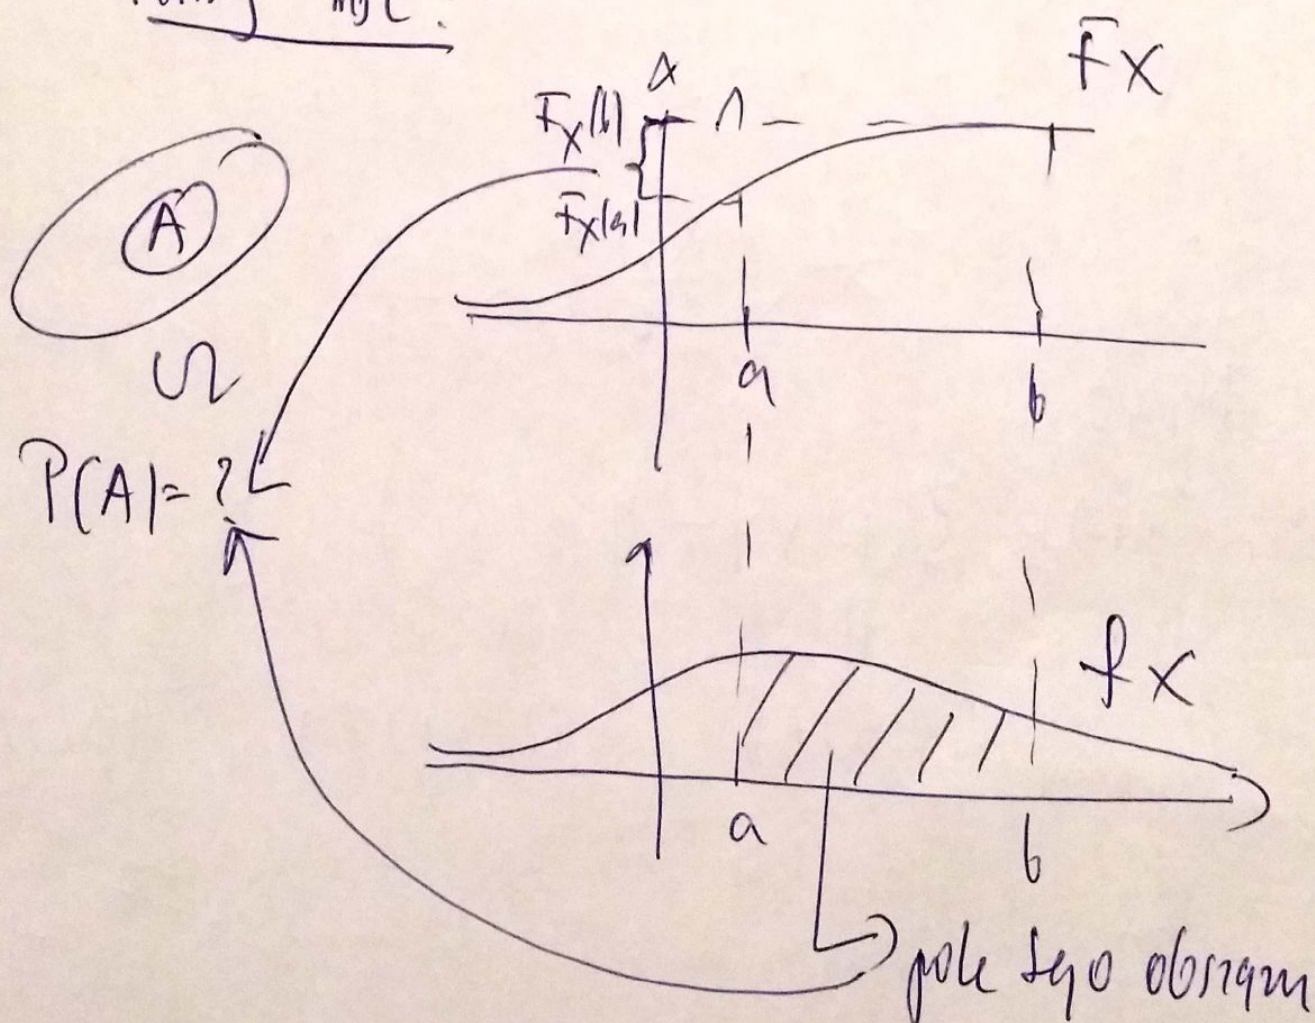 F_X
F_X(b)
1
F_X(a)
A
Ω
a
b
P(A) = ?
f_X
a
b
pole tego obszaru